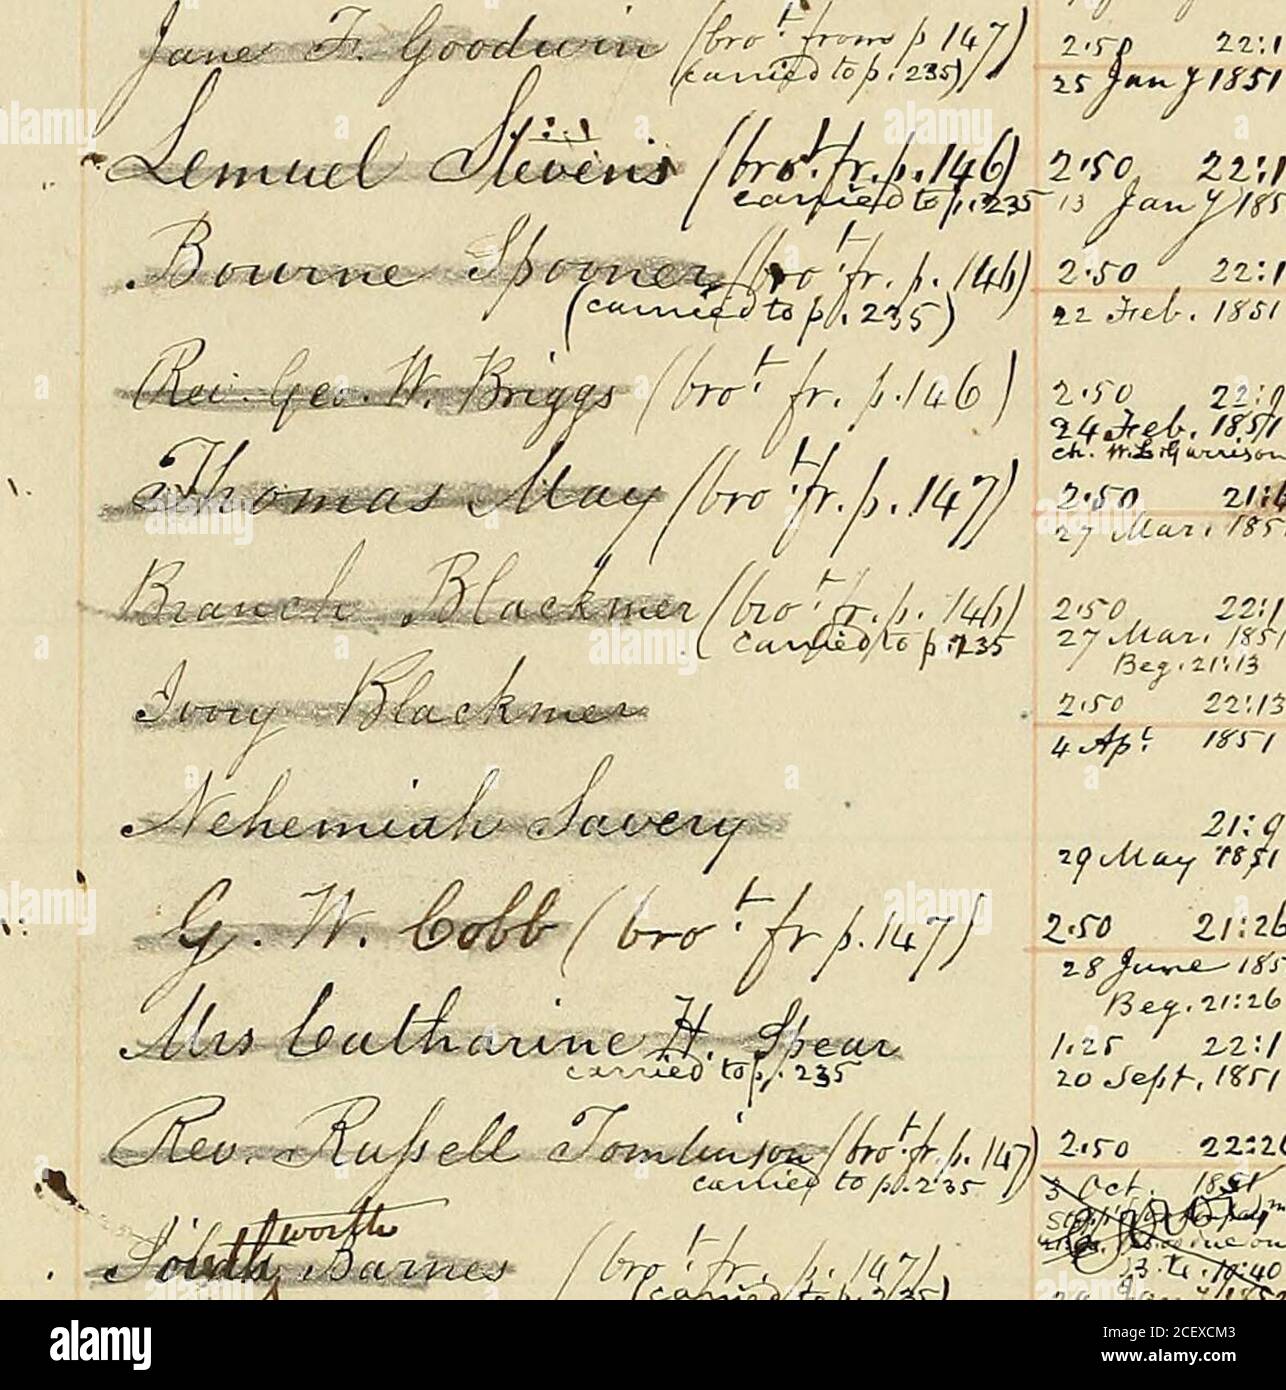 Jane F. Goodwin (bro.t from p 147) 2.50 22:1
(carried to p. 235) 25 Jany 1851
Lemuel Stevens (bro.t fr. p. 146) 2.50 22:1
carried to p. 235 13 Jany 185
Bourne Spooner (bro.t fr. p. 146) 2.50 22:1
(carried to p. 235) 22 Feb. 1851
Rev. Geo. W. Briggs (bro.t fr. p. 146) 2.50 22:9
24 Feb. 1851
ch. W. L. Garrison
Thomas May (bro.t fr. p. 147) 2.50 21:6
27 Mar. 185
Branch Blackmer (bro.t fr. p. 146) 2.50 22:1
(carried to p. 235 27 Mar. 1851
Beg. 21:13
Ivory Blackmer 2.50 22:13
4 Ap.l 1851
Nehemiah Savery 21:9
29 May 1851
G. W. Cobb (bro.t fr p. 147) 2.50 21:26
28 June 185
Beg. 21:26
Mrs Catharine H. Spear 1.25 22:1
carried to p. 235 20 Sept. 1851
Rev. Russell Tomlinson (bro.t fr. p. 147) 2.50 22:26
carried to p. 235 3 Oct. 1851
worth
South Barnes (bro.t fr. p. 147)
(carried to p. 235)
alamy
Image ID: 2CEXCM3
www.alamy.com